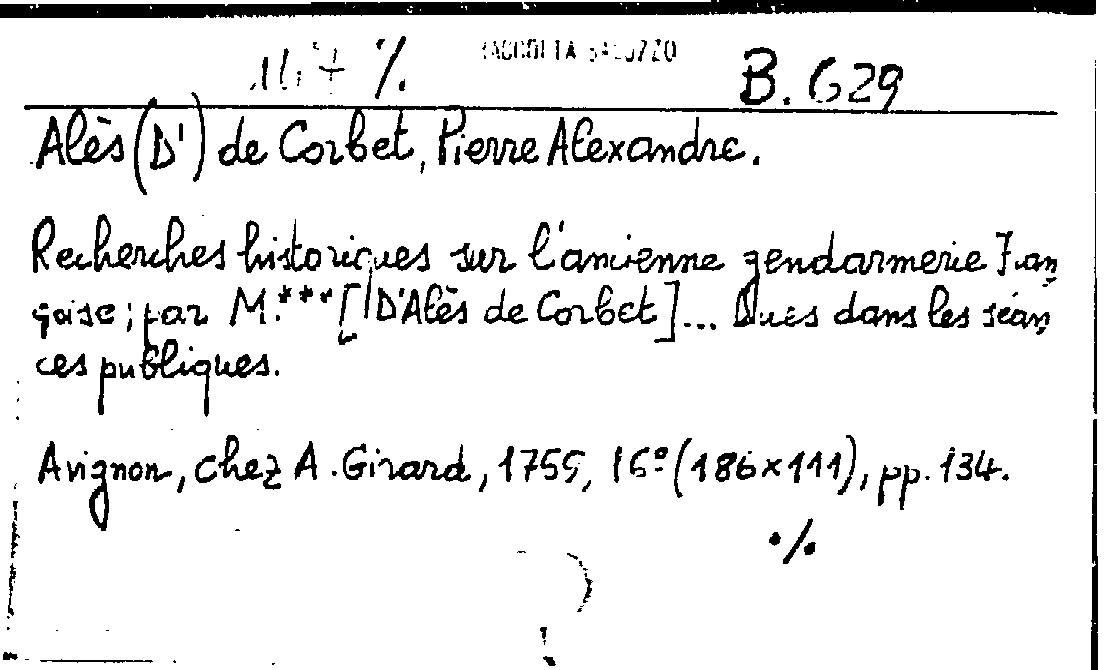 RACCOLTA SALUZZO
B. G29
Alès (D') de Corbet, Pierre Alexandre.
Recherches historiques sur l'ancienne gendarmerie Fran
çaise; par M.*** [D'Alès de Corbet]... Lues dans les séan
ces publiques.
Avignon, chez A. Girard, 1759, 16º (186×111), pp. 134.
./.